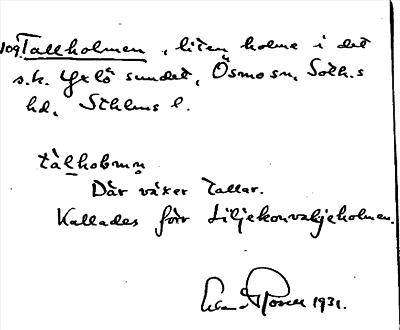 109. Tallholmen, liten holme i det
s.k. Yxlö sundet, Ösmo sn, Soth.s
hd, Sthlms l.
tàlhobmn̥
Där växer tallar.
Kallades förr Liljekonvaljeholmen.
1931.